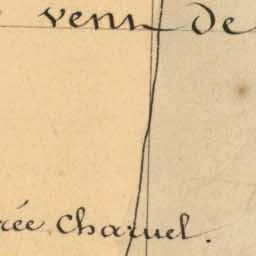 vent de
rée Charuel.